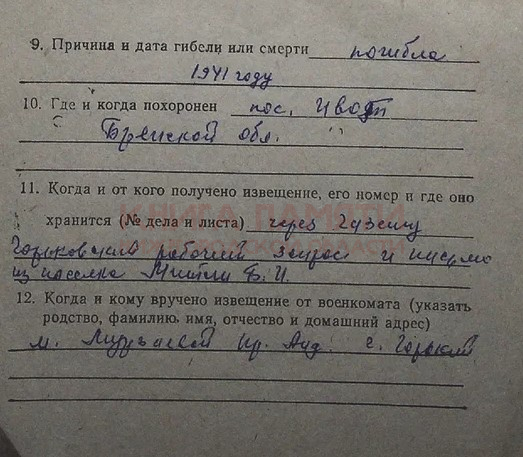 9. Причина и дата гибели или смерти погибла
1941 году
10. Где и когда похоронен пос. Ивот
Брянской обл.
11. Когда и от кого получено извещение, его номер и где оно
КНИГА ПАМЯТИ
хранится (№ дела и листа) через газету
НИЖЕГОРОДСКОЙ ОБЛАСТИ
Горьковский рабочий запрос и письмо
из поселка Б. И.
12. Когда и кому вручено извещение от военкомата (указать
родство, фамилию, имя, отчество и домашний адрес)
г. Горький